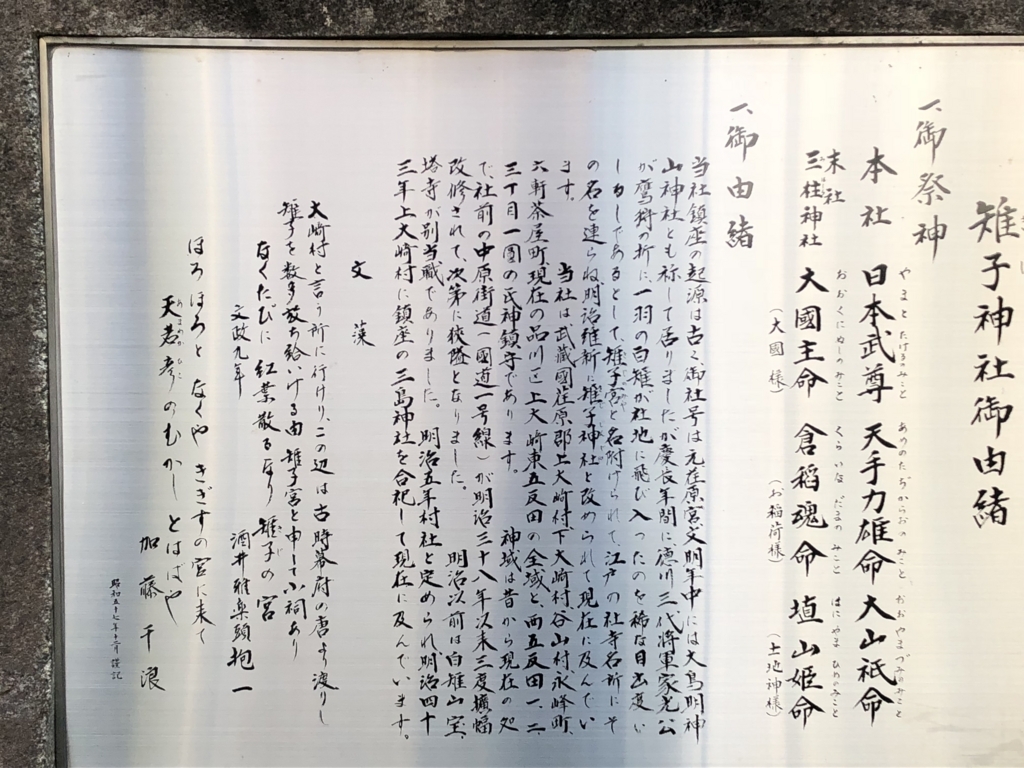 雉子神社御由緒
一、御祭神
本社 日本武尊 天手力雄命 大山祇命
やまと たけるのみこと あめのたぢからおの みこと おお やまづみのみこと
末社
三柱神社 大國主命 倉稲魂命 埴山姫命
おおくにぬしのみこと くらいなだまの みこと はに やまひめのみこと
(大國様) (お稲荷様) (土地神様)
一、御由緒
当社鎮座の起源は古く御社号は元荏原宮文明年中には大鳥明神
山神社とも称して居りましたが慶長年間に徳川三代将軍家光公
が鷹狩の折に一羽の白雉が社地に飛び入ったのを稀な目出度い
しるしであるとして、雉子宮と名附けられて江戸の社寺名所にそ
の名を連らね、明治維新に雉子神社と改められて現在に及んでい
ます。 当社は武蔵國荏原郡上大崎村、下大崎村、谷山村、永峰町、
六軒茶屋町現在の品川区上大崎東五反田の全域と、西五反田一、二、
三丁目一圓の氏神鎮守であります。 神域は昔から現在の処
で、社前の中原街道(國道一号線)が明治三十八年以来三度擴幅
改修されて、次第に狭隘となりました。 明治以前は白雉山宝
塔寺が別当職でありました。 明治五年村社と定められ明治四十
三年上大崎村に鎮座の三島神社を合祀して現在に及んでいます。
文藻
大崎村と言う所に行けり、この辺は古時幕府の唐より渡りし
雉子を数多放ち給いける由雉子宮と申す小祠あり
なくたびに 紅葉散るなり 雉子の宮
文政九年 酒井雅楽頭抱一
ほろほろと なくや きぎすの宮に来て
天若彦の むかし とはばや
加藤千浪
昭和五十七年十二月 謹記